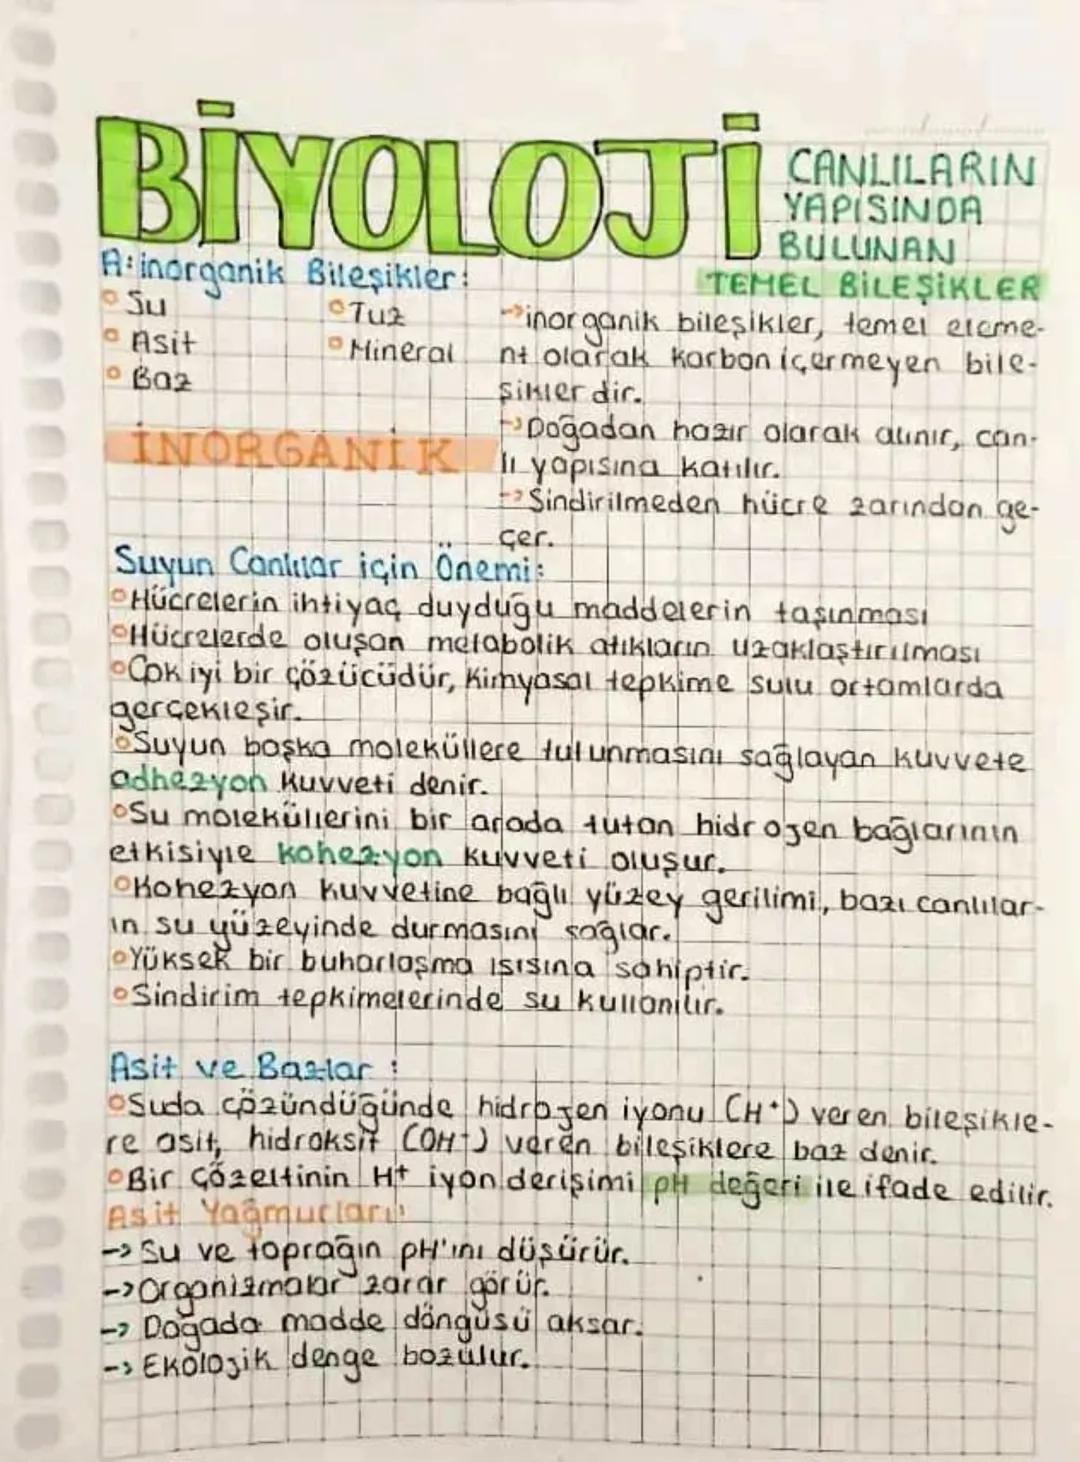 BİYOLOJİ
CANLILARIN
YAPISINDA
BULUNAN
TEMEL BİLEŞİKLER
A: inorganik Bileşikler:
Su
Tuz
Asit
Mineral
Baz
İNORGANİK
→inorganik bileşikler, temel eleme-
nt olarak karbon içermeyen bile-
şiklerdir.
→Doğadan hazır olarak alınır, can-
lı yapısına katılır.
→Sindirilmeden hücre zarından ge-
çer.
Suyun Canlılar için Önemi:
Hücrelerin ihtiyaç duyduğu maddelerin taşınması
Hücrelerde oluşan metabolik atıkların uzaklaştırılması
Çok iyi bir çözücüdür, kimyasal tepkime sulu ortamlarda
gerçekleşir.
Suyun başka moleküllere tutunmasını sağlayan kuvvete
adhezyon kuvveti denir.
Su moleküllerini bir arada tutan hidrojen bağlarının
etkisiyle kohezyon kuvveti oluşur.
Kohezyon kuvvetine bağlı yüzey gerilimi, bazı canlılar-
ın su yüzeyinde durmasını sağlar.
Yüksek bir buharlaşma ısısına sahiptir.
Sindirim tepkimelerinde su kullanılır.
Asit ve Bazlar :
Suda çözündüğünde hidrojen iyonu (H⁺) veren bileşikle-
re asit, hidroksit (OH-) veren bileşiklere baz denir.
Bir Çözeltinin H⁺ iyon derişimi pH değeri ile ifade edilir.
Asit Yağmurları:
→ Su ve toprağın pH'ını düşürür.
→ Organizmalar zarar görür.
→ Doğada madde döngüsü aksar.
→ Ekolojik denge bozulur.